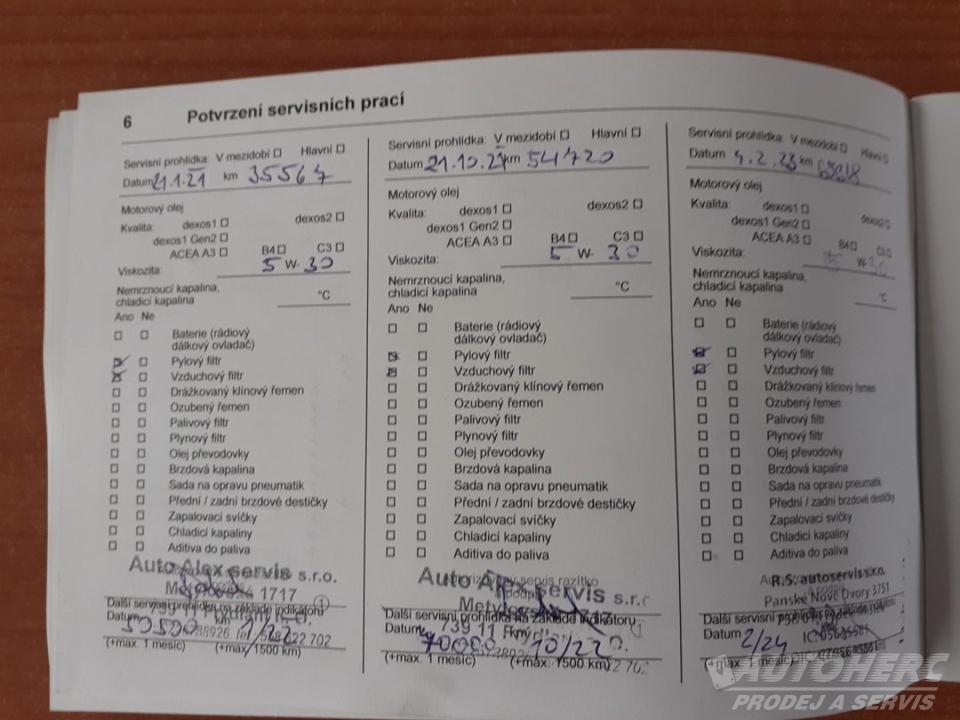 6 Potvrzení servisních prací
Servisní prohlídka: V mezidobí Hlavní
Datum 21.1.21 km 35567
Motorový olej
Kvalita: dexos1 dexos2
dexos1 Gen2
ACEA A3 B4 C3
Viskozita: 5 W- 30
Nemrznoucí kapalina,
chladicí kapalina °C
Ano Ne
Baterie (rádiový
dálkový ovladač)
Pylový filtr
Vzduchový filtr
Drážkovaný klínový řemen
Ozubený řemen
Palivový filtr
Plynový filtr
Olej převodovky
Brzdová kapalina
Sada na opravu pneumatik
Přední / zadní brzdové destičky
Zapalovací svíčky
Chladicí kapaliny
Aditiva do paliva
Auto Alex servis s.r.o.
1717
Další servisní prohlídka na základě indikátoru
739 11
Datum
702
(+max. 1 měsíc) (+max. 1500 km)
Servisní prohlídka: V mezidobí Hlavní
Datum 21.10.21 km 54720
Motorový olej
Kvalita: dexos1 dexos2
dexos1 Gen2
ACEA A3 B4 C3
Viskozita: 5 W- 30
Nemrznoucí kapalina,
chladicí kapalina °C
Ano Ne
Baterie (rádiový
dálkový ovladač)
Pylový filtr
Vzduchový filtr
Drážkovaný klínový řemen
Ozubený řemen
Palivový filtr
Plynový filtr
Olej převodovky
Brzdová kapalina
Sada na opravu pneumatik
Přední / zadní brzdové destičky
Zapalovací svíčky
Chladicí kapaliny
Aditiva do paliva
Auto Alex servis s.r.o.
servis razítko
1717
Další servisní prohlídka na základě indikátoru
739 11
Datum 70000 10/22
(+max. 1 měsíc) (+max. 1500 km)
Servisní prohlídka: V mezidobí Hlavní
Datum 4.2.23 km
Motorový olej
Kvalita: dexos1 dexos2
dexos1 Gen2
ACEA A3 B4 C3
Viskozita: 5 W- 30
Nemrznoucí kapalina,
chladicí kapalina °C
Ano Ne
Baterie (rádiový
dálkový ovladač)
Pylový filtr
Vzduchový filtr
Drážkovaný klínový řemen
Ozubený řemen
Palivový filtr
Plynový filtr
Olej převodovky
Brzdová kapalina
Sada na opravu pneumatik
Přední / zadní brzdové destičky
Zapalovací svíčky
Chladicí kapaliny
Aditiva do paliva
R.S. autoservis s.r.o.
Panské Nové Dvory 3751
Další servisní prohlídka na základě
Datum 2/24
(+max. 1 měsíc)
AUTOHERC
PRODEJ A SERVIS